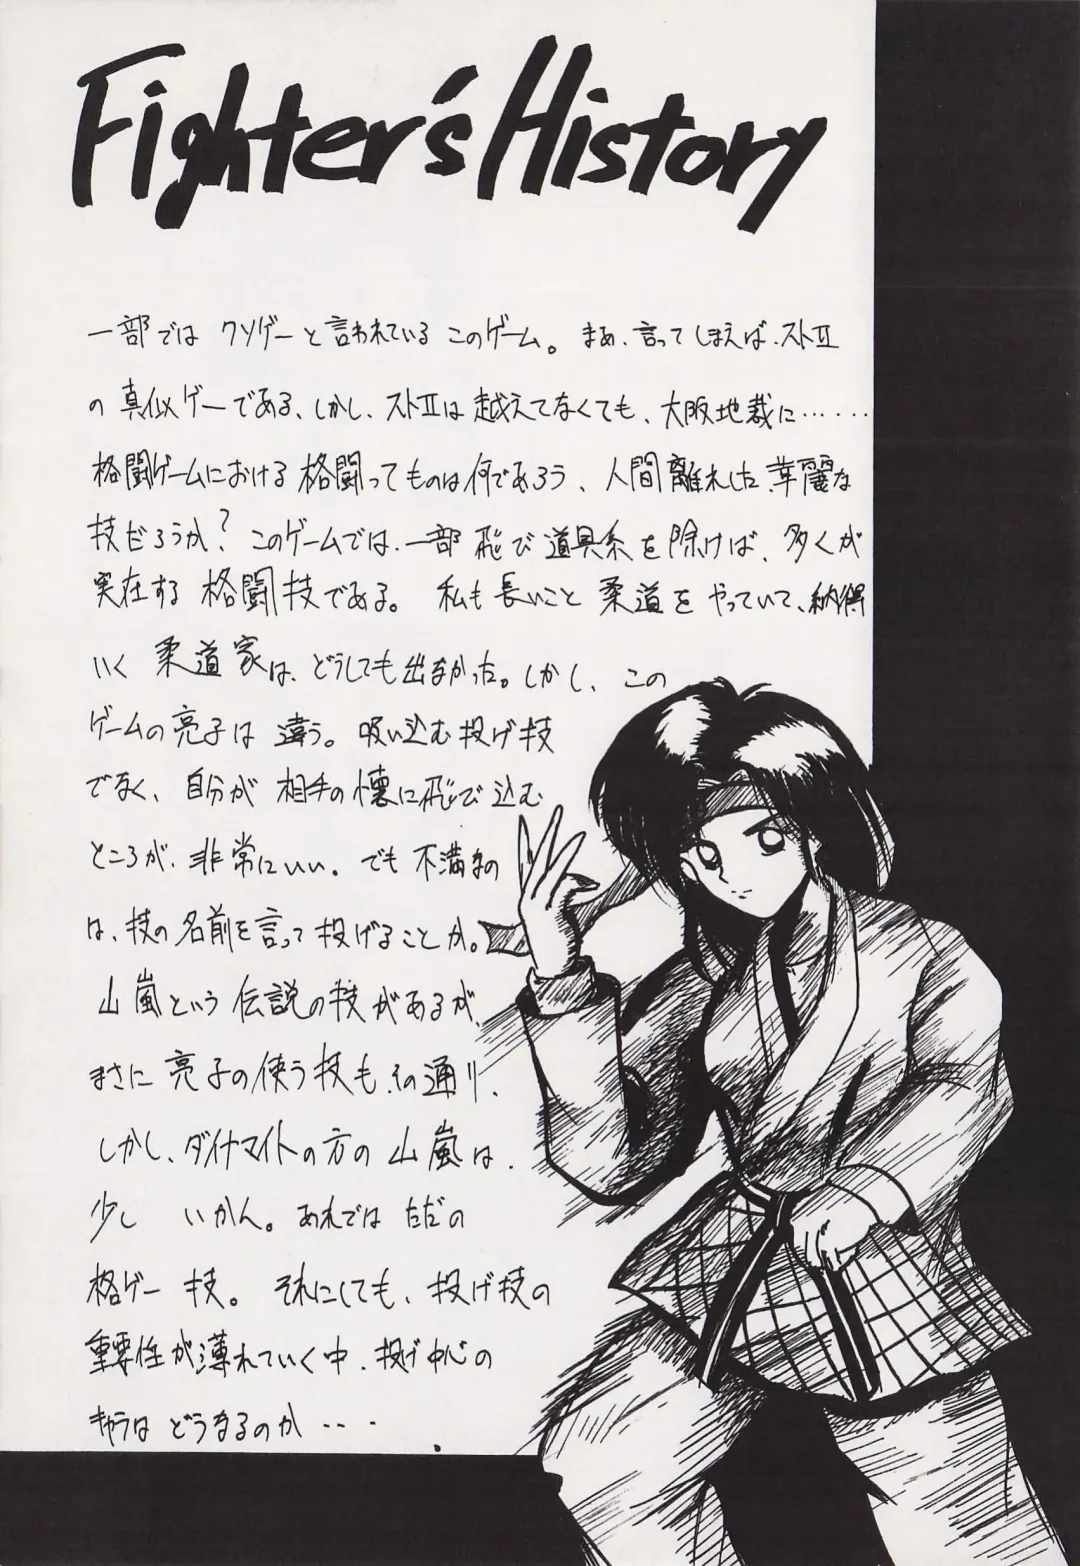 Fighter's History
一部では クソゲーと言われている このゲーム。まぁ、言ってしまえば、ストⅡ
の真似ゲーである、しかし、ストⅡは越えてなくても、大阪地裁に‥‥‥
格闘ゲームにおける格闘ってものは何であろう、人間離れした華麗な
技だろうか? このゲームでは、一部飛び道具系を除けば、多くが
実在する格闘技である。私も長いこと柔道をやっていて、納得
いく柔道家は、どうしても出なかった。しかし、この
ゲームの亮子は違う。吸い込む投げ技
でなく、自分が相手の懐に飛び込む
ところが、非常にいい。でも不満なの
は、技の名前を言って投げることか。
山嵐という伝説の技があるが、
まさに亮子の使う技も、その通り、
しかし、ダイナマイトの方の山嵐は、
少し いかん。あれでは ただの
格ゲー技。それにしても、投げ技の
重要性が薄れていく中、投げ中心の
キャラはどうなるのか‥‥